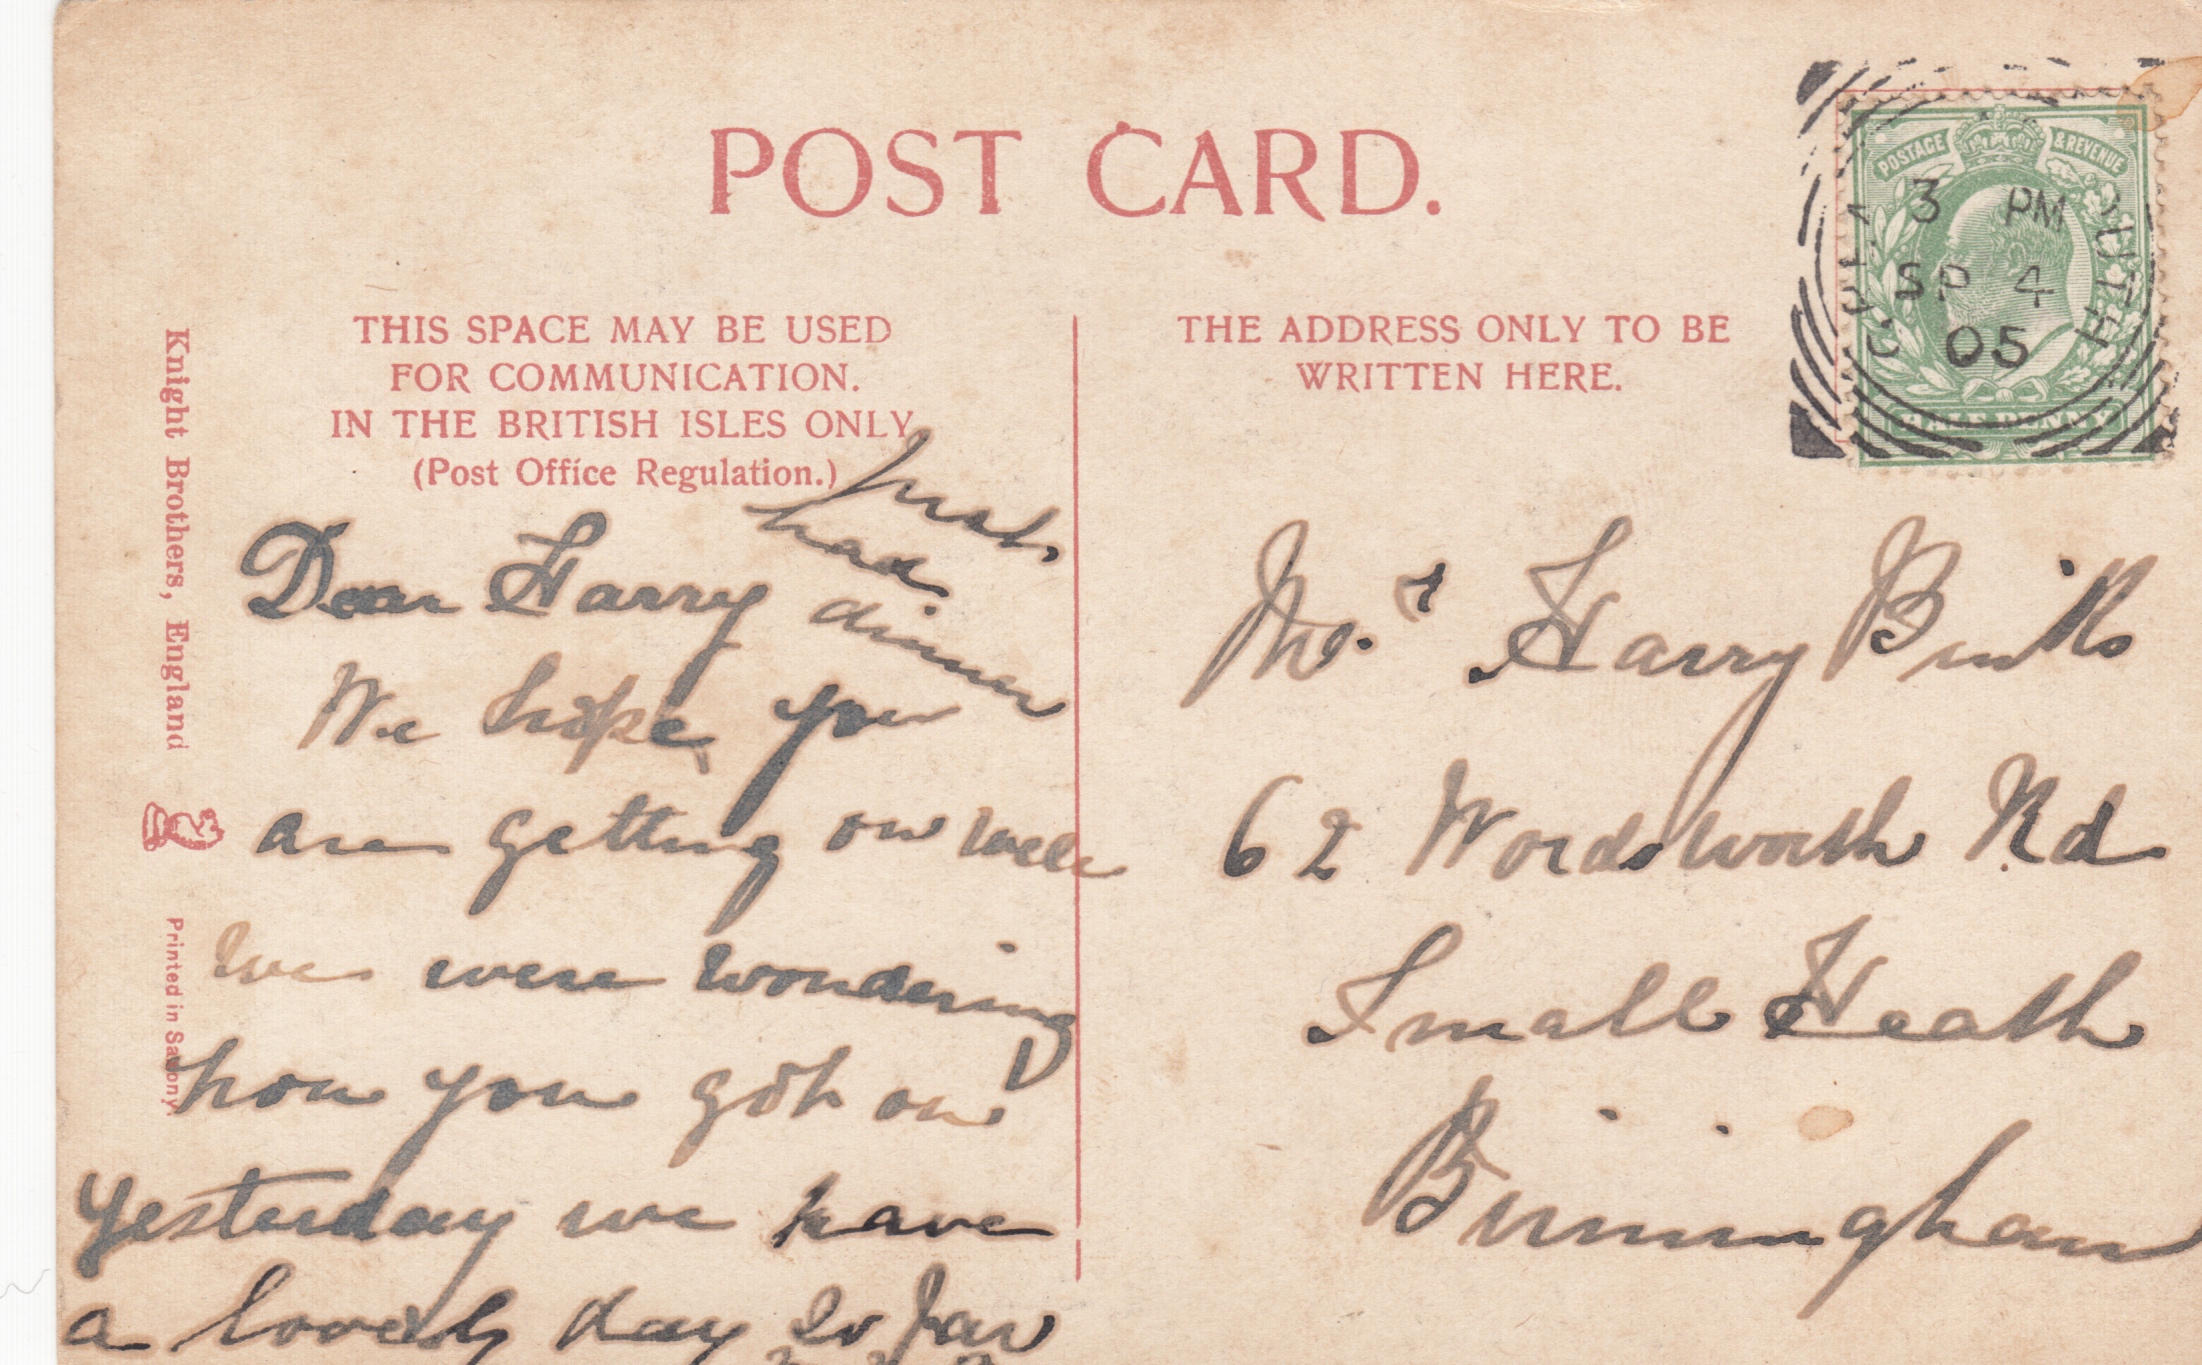 POST CARD.
POSTAGE & REVENUE
3 PM
SP 4
05
HALF PENNY
THIS SPACE MAY BE USED
FOR COMMUNICATION.
IN THE BRITISH ISLES ONLY
(Post Office Regulation.)
THE ADDRESS ONLY TO BE
WRITTEN HERE.
Knight Brothers, England
Printed in Saxony.
Just
had
dinner
Dear Harry
We hope you
are getting on well
We were wondering
how you got on
yesterday we have
a lovely day so far
Harry
62 Wordsworth Rd
Small Heath
Birmingham